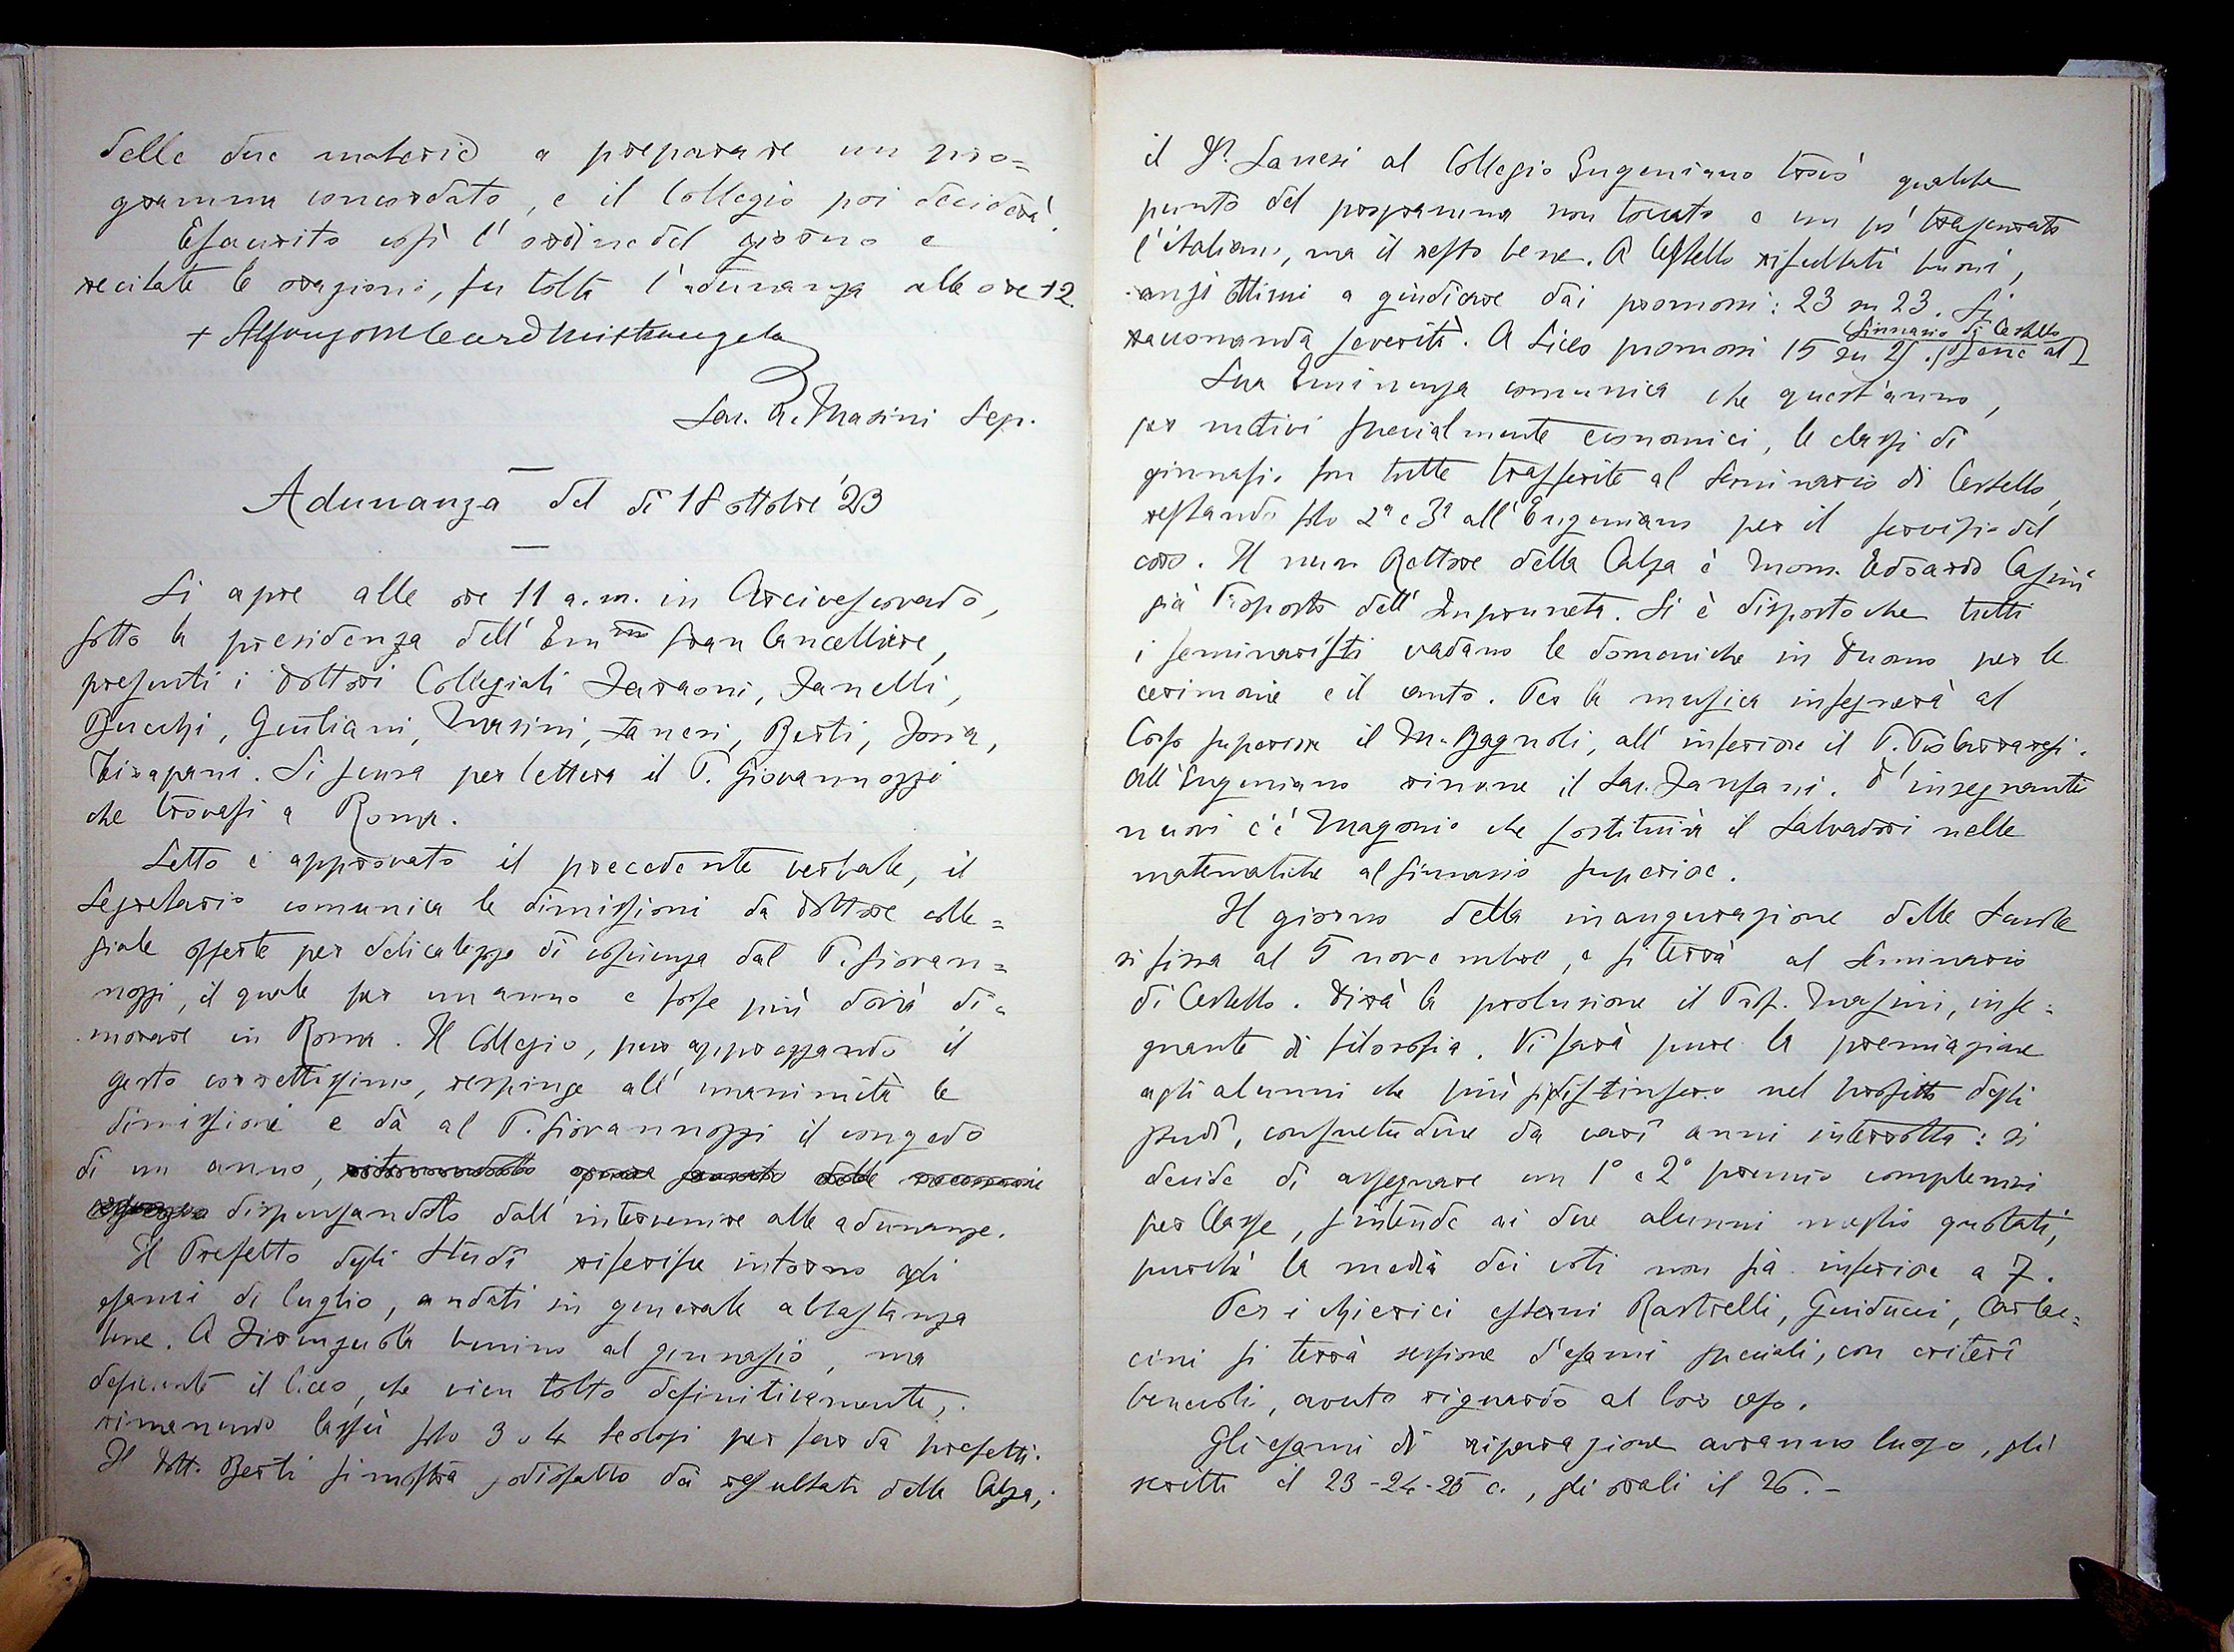 delle due materie a preparare un pro=
gramma concordato, e il Collegio poi deciderà.
Esaurito così l'ordine del giorno e
recitate le orazioni, fu tolta l'adunanza alle ore 12.
+ Alfonso M Card Mistrangelo
Sac. A. Masini Seg.
Adunanza del dì 18 ottobre '23
Si apre alle ore 11 a.m. in Arcivescovado,
sotto la presidenza dell'Em.mo Gran Cancelliere,
presenti i dottori Collegiali Faraoni, Fanelli,
Bucchi, Giuliani, Masini, Lanesi, Berti,
Tirapani. Si scusa per lettera il P. Giovannozzi
che trovasi a Roma.
Letto e approvato il precedente verbale, il
Segretario comunica le dimissioni da dottore colle=
giale offerte per delicatezza di coscienza dal P. Giovan=
nozzi, il quale per un anno e forse più dovrà di=
morare in Roma. Il Collegio, pur apprezzando il
gesto correttissimo, respinge all'unanimità le
dimissioni e dà al P. Giovannozzi il congedo
di un anno,
dispensandolo dall'intervenire alle adunanze.
Il Prefetto degli Studî riferisce intorno agli
esami di luglio, andati in generale abbastanza
bene. A Firenzuola benino al ginnasio, ma
deficiente il liceo, che vien tolto definitivamente,
rimanendo lassù solo 3 o 4 teologi per far da prefetti.
Il Dott. Berti si mostra sodisfatto dei resultati della Calza;
il D.r Lanesi al Collegio Eugeniano trovò qualche
punto del programma non toccato e un po' trascurato
l'italiano, ma il resto bene. A Cestello risultati buoni,
anzi ottimi a giudicare dai promossi: 23 su 23. Si
Ginnasio di Cestello
raccomanda severità. A Liceo promossi 15 su 21. Bene al
Sua Eminenza comunica che quest'anno,
per motivi specialmente economici, le classi di
ginnasio son tutte trasferite al Seminario di Cestello,
restando solo 2ª e 3ª all'Eugeniano per il servizio del
coro. Il nuovo Rettore della Calza è Mons. Edoardo Casini
già Proposto dell'Impruneta. Si è disposto che tutti
i seminaristi vadano le domeniche in Duomo per le
cerimonie e il canto. Per la musica insegnerà al
Corso superiore il M. Bagnoli, all'inferiore il P. Pio
All'Eugeniano rimane il Sac. Fanfani. D'insegnanti
nuovi c'è Magonio che sostituirà il Salvadori nelle
matematiche al Ginnasio superiore.
Il giorno della inaugurazione delle Scuole
si fissa al 5 novembre, e si terrà al Seminario
di Cestello. Dirà la prolusione il Prof. Masini, inse=
gnante di filosofia. Vi sarà pure la premiazione
agli alunni che più si distinsero nel profitto degli
studî, consuetudine da varî anni interrotta: si
decide di assegnare un 1° e 2° premio complessivi
per Classe, s'intende ai due alunni meglio quotati,
purchè la media dei voti non sia inferiore a 7.
Per i chierici esterni Rastrelli, Guiducci, Carbo=
cini si terrà sessione d'esami speciali, con criterî
benevoli, avuto riguardo al loro caso.
Gli esami di riparazione avranno luogo, gli
scritti il 23-24-25 c., gli orali il 26.-